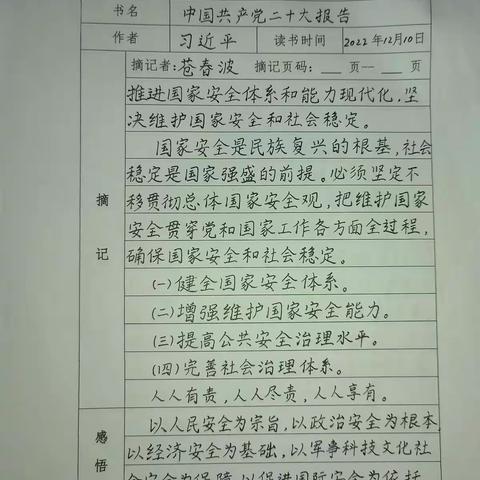 书名 中国共产党二十大报告
作者 习近平 读书时间 2022年12月10日
摘记者:苍春波 摘记页码: ___ 页— ___ 页
推进国家安全体系和能力现代化,坚
决维护国家安全和社会稳定。
国家安全是民族复兴的根基,社会
稳定是国家强盛的前提。必须坚定不
移贯彻总体国家安全观,把维护国家
安全贯穿党和国家工作各方面全过程,
确保国家安全和社会稳定。
摘记
(一)健全国家安全体系。
(二)增强维护国家安全能力。
(三)提高公共安全治理水平。
(四)完善社会治理体系。
人人有责,人人尽责,人人享有。
感悟
以人民安全为宗旨,以政治安全为根本,
以经济安全为基础,以军事科技文化社
会安全为保障,以促进国际安全为依托